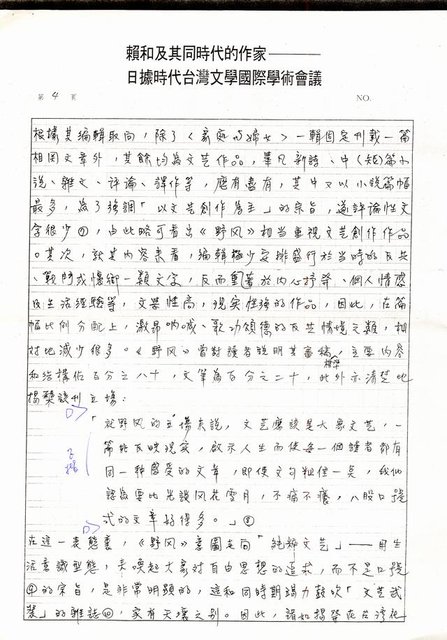 賴和及其同時代的作家———
日據時代台灣文學國際學術會議
第 4 頁 NO.
根據其編輯取向，除了《家庭与婦女》一輯固定刊載一篇
相關文章外，其餘均為文艺作品，舉凡新詩、中(短)篇小
說、雜文、評論、譯作等，應有盡有，其中又以小說篇幅
最多，為了強調「以文艺創作為主」的宗旨，連評論性文
字很少②，由此略可看出《野风》相当重視文艺創作作品
。其次，就其內容來看，編輯極少安排盛行於當時的反共
、戰鬥或懷鄉一類文字，反而着重於內心抒發、個人情感
及生活經驗等，文學性高，現實性強的作品，因此，在篇
幅比例分配上，激昂吶喊、歌功頌德的反共情境之類，相
對地減少很多。《野风》曾對讀者說明其審稿標準，主要內容
和結構佔百分之八十，文筆為百分之二十，此外亦清楚地
揭櫫該刊立場：
「就野风的立場來說，文艺應該是大眾文艺，一
篇能反映現實，啟示人生而使每一個讀者都有
同一種感受的文章，即使文句粗俚一点，我们
認為要比光談风花雪月，不痛不癢，八股口號
式的文章好得多。」③
在這一表態裏，《野风》意圖走向「純粹文艺」——用生
活意識型態，去喚起大家對自由思想的追求，而不是口號
④的宗旨，是非常明顯的，這和同時期竭力鼓吹「文艺武
裝」的雜誌⑩，實有天壤之別。因此，諸如揭發在台灣投